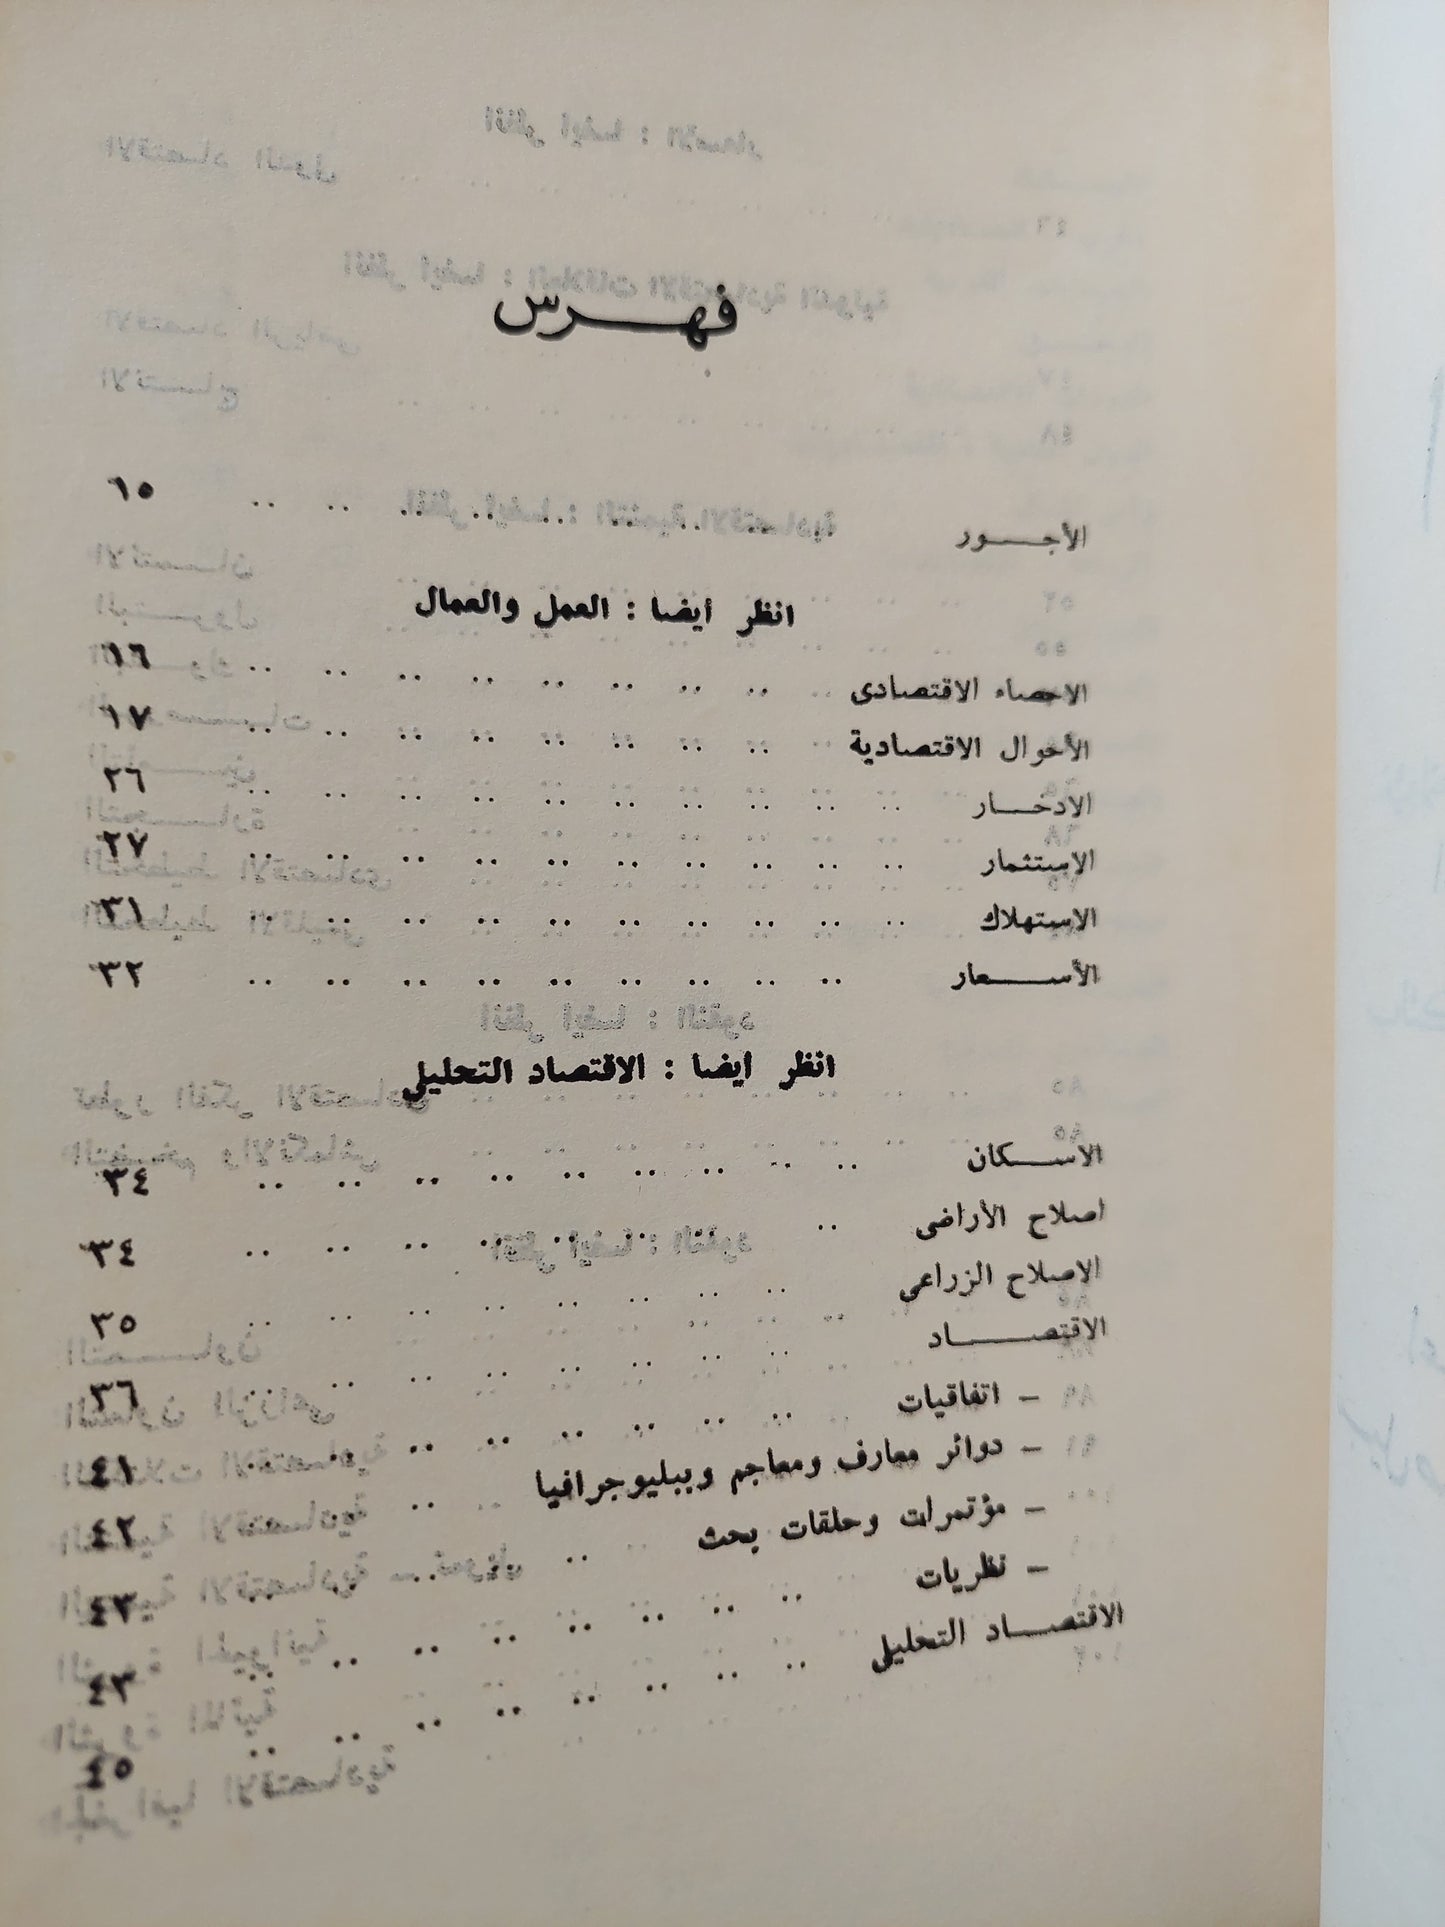 فهرس
الأجور .. .. .. .. .. .. .. .. ١٥
انظر أيضا : العمل والعمال
الاحصاء الاقتصادى .. .. .. .. .. .. .. .. ١٦
الأحوال الاقتصادية .. .. .. .. .. .. .. .. ١٧
الادخار .. .. .. .. .. .. .. .. .. ٢٦
الاستثمار .. .. .. .. .. .. .. .. .. ٢٧
الاستهلاك .. .. .. .. .. .. .. .. .. ٣١
الأسعار .. .. .. .. .. .. .. .. .. ٣٢
انظر أيضا : الاقتصاد التحليلى
الاسكان .. .. .. .. .. .. .. .. .. ٣٤
اصلاح الأراضى .. .. .. .. .. .. .. .. ٣٤
الاصلاح الزراعى .. .. .. .. .. .. .. .. ٣٥
الاقتصاد .. .. .. .. .. .. .. .. ٣٦
– اتفاقيات .. .. .. .. .. .. .. .. ٤١
– دوائر معارف ومعاجم وببليوجرافيا .. .. .. .. ٤٢
– مؤتمرات وحلقات بحث .. .. .. .. .. .. ٤٣
– نظريات .. .. .. .. .. .. .. .. ٤٣
الاقتصاد التحليلى .. .. .. .. .. .. .. .. ٤٥